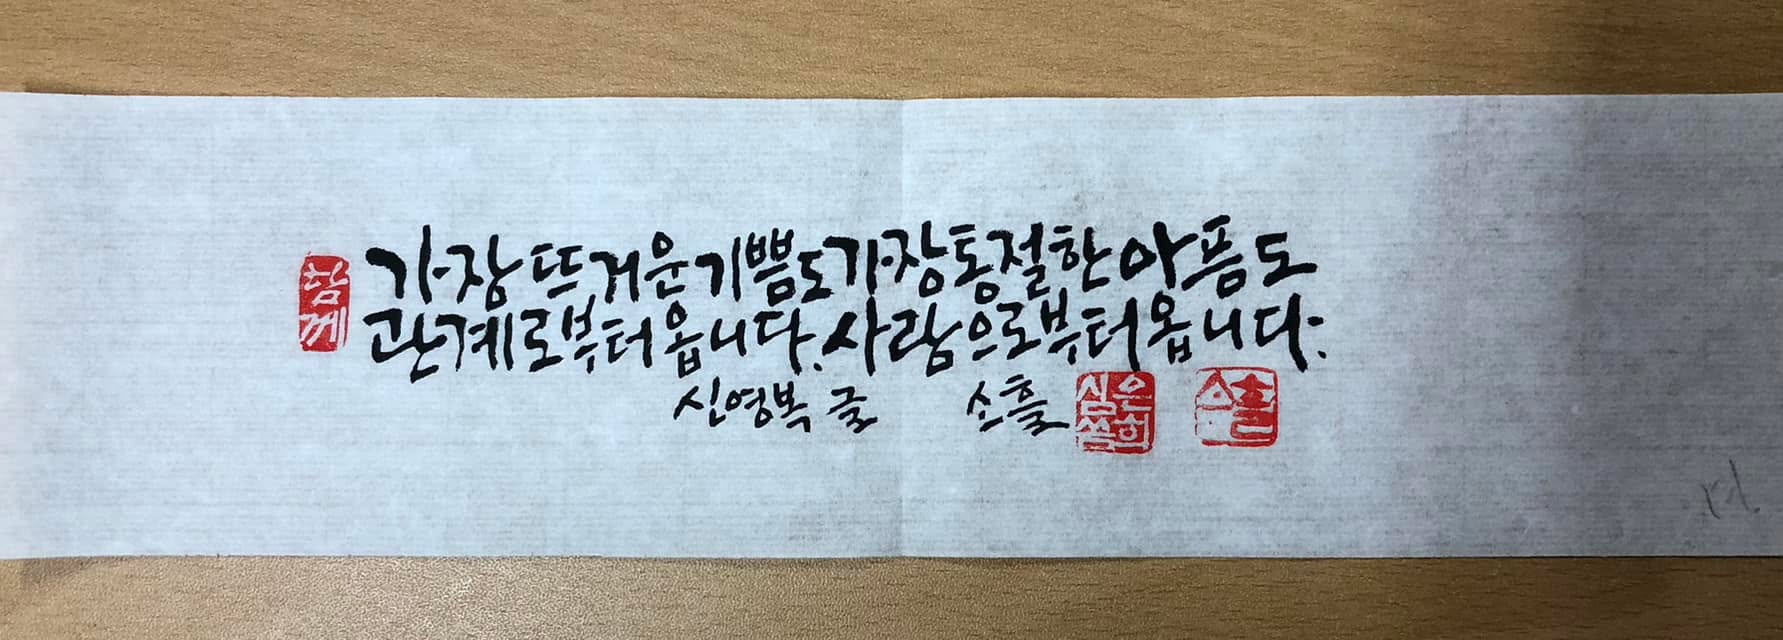 함께
가장 뜨거운 기쁨도 가장 통절한 아픔도
관계로부터 옵니다. 사람으로부터 옵니다.
신영복 글 소흘
심은희
소흘